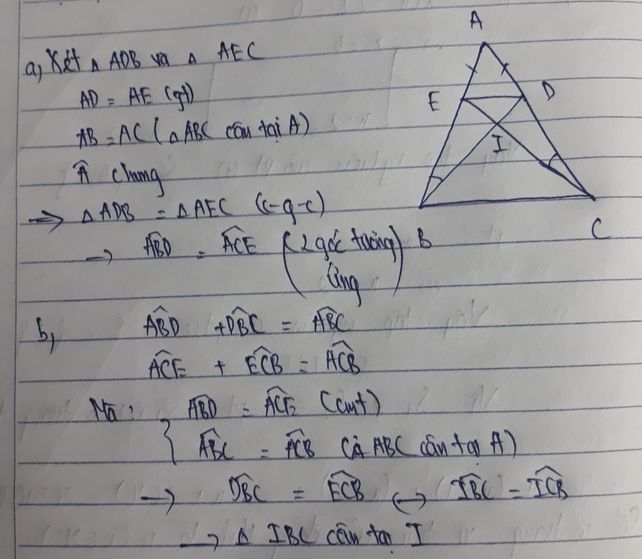 a, Xét △ ADB và △ AEC
AD = AE (gt)
AB = AC (△ ABC cân tại A)
Â chung
→ △ ADB = △ AEC (c-g-c)
→ \widehat{ABD} = \widehat{ACE} (2 góc tương ứng)
b, \widehat{ABD} + \widehat{DBC} = \widehat{ABC}
\widehat{ACE} + \widehat{ECB} = \widehat{ACB}
Mà: { \widehat{ABD} = \widehat{ACE} (cmt)
\widehat{ABC} = \widehat{ACB} (△ ABC cân tại A)
→ \widehat{DBC} = \widehat{ECB} ↔ \widehat{IBC} = \widehat{ICB}
→ △ IBC cân tại I
A
E
D
I
B
C